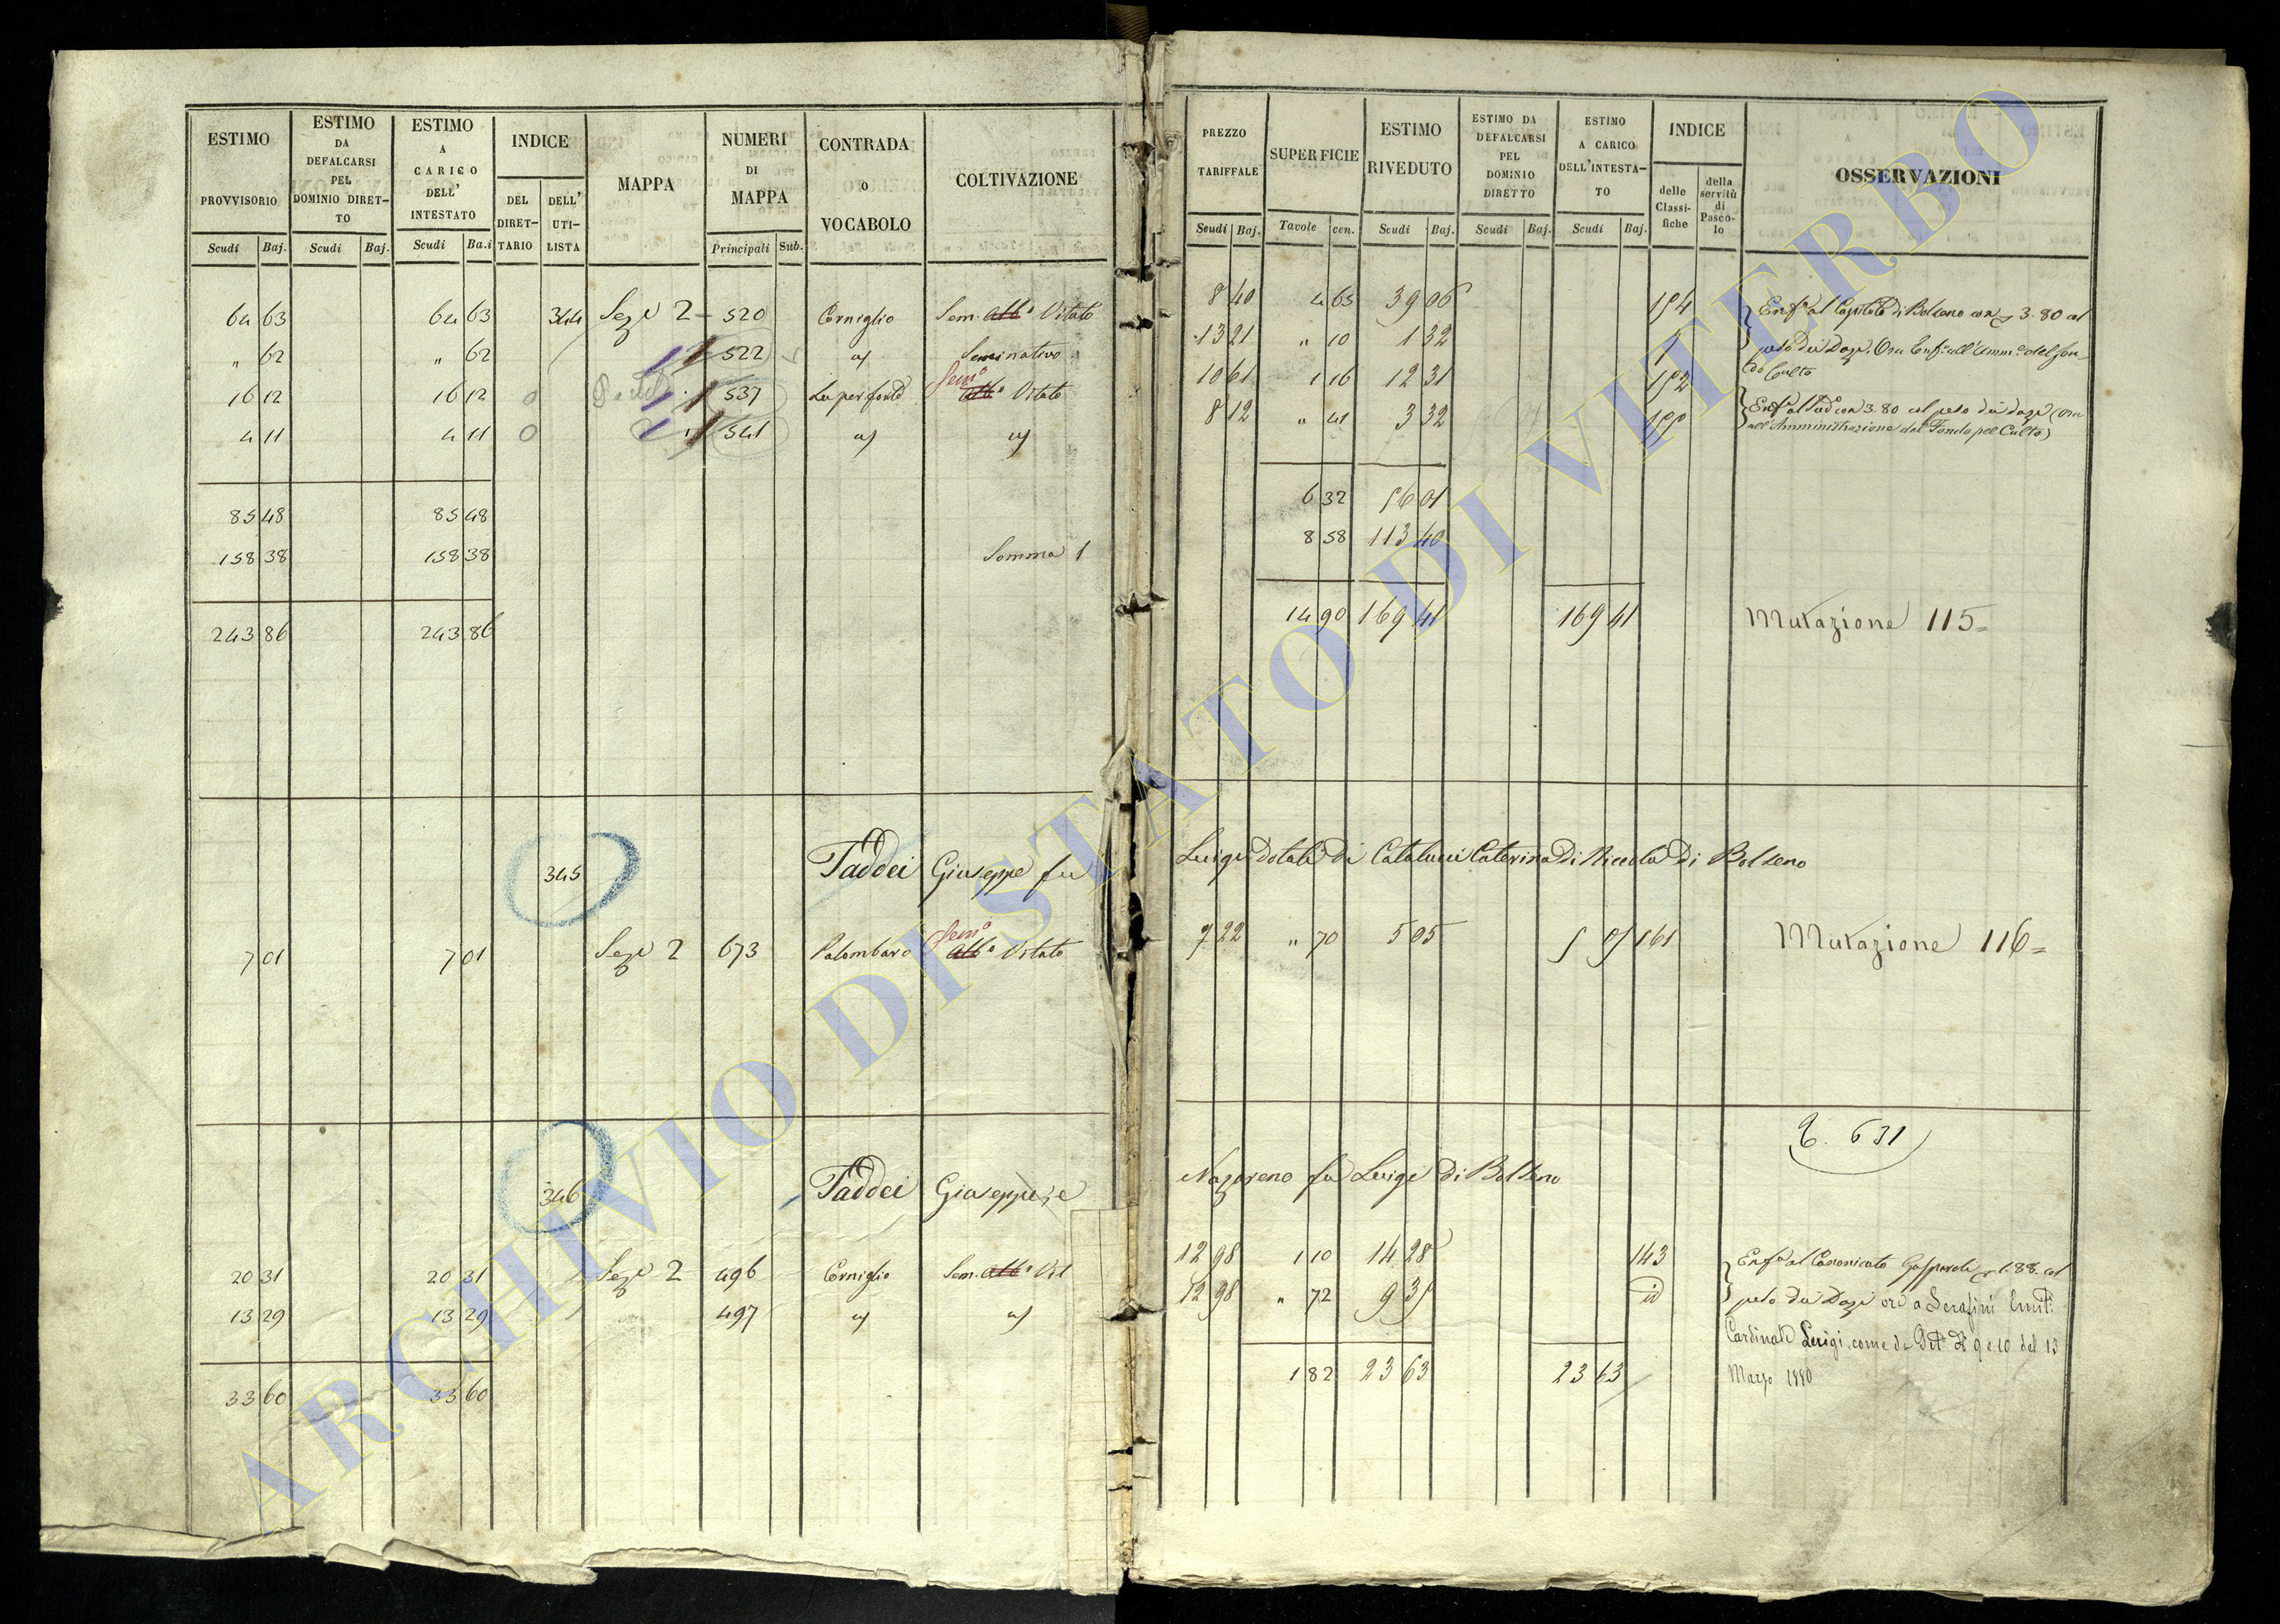 ESTIMO PROVVISORIO
Scudi Baj.
ESTIMO DA DEFALCARSI PEL DOMINIO DIRET-TO
Scudi Baj.
ESTIMO A CARICO DELL' INTESTATO
Scudi Ba.i
INDICE
DEL DIRET-TARIO
DELL' UTI-LISTA
MAPPA
NUMERI DI MAPPA
Principali Sub.
CONTRADA O VOCABOLO
COLTIVAZIONE
64 63 64 63 344 Sez.e 2 520 Corniglio Sem. Vitato
" 62 " 62 1 522 Seminativo
16 12 16 12 0 1 537 Sem.o Vitato
4 11 4 11 0 1 541
85 48 85 48
158 38 158 38 Somma 1
243 86 243 86
345 Taddei Giuseppe fu
7 01 7 01 Sez.e 2 673 Palombaro Sem.o Vitato
346 Taddei Giuseppe, e
20 31 20 31 Sez.e 2 496 Corniglio Sem. Vit
13 29 13 29 497
33 60 33 60
PREZZO TARIFFALE
Scudi Baj.
SUPERFICIE
Tavole cen.
ESTIMO RIVEDUTO
Scudi Baj.
ESTIMO DA DEFALCARSI PEL DOMINIO DIRETTO
Scudi Baj.
ESTIMO A CARICO DELL'INTESTA-TO
Scudi Baj.
INDICE
delle Classi-fiche
della servitù di Pasco-lo
OSSERVAZIONI
8 40 4 65 39 06 Enf.a al Capitolo di Bolseno con 3.80 col
13 21 " 10 1 32 peso dei Dazi. Ora Enf. all'Amm.e del Fon-
do Culto
10 61 1 16 12 31
8 12 " 41 3 32 3.80 col peso dei dazi (ora
all'Amministrazione del Fondo pel Culto)
6 32 56 01
8 58 113 40
14 90 169 41 169 41 Mutazione 115=
Luigi dotali di Catalucci Caterina di Niccola di Bolseno
7 22 " 70 5 05 5 05 161 Mutazione 116=
631
Nazzareno fu Luigi di Bolseno
12 98 1 10 14 28 143 Enf.a al Canonicato 1.88. col
12 98 " 72 9 35 id peso dei Dazi ora a Serafini
Cardinale Luigi, come da 9 e 10 del 13
1 82 23 63 23 63 Marzo 1880
ARCHIVIO DI STATO DI VITERBO